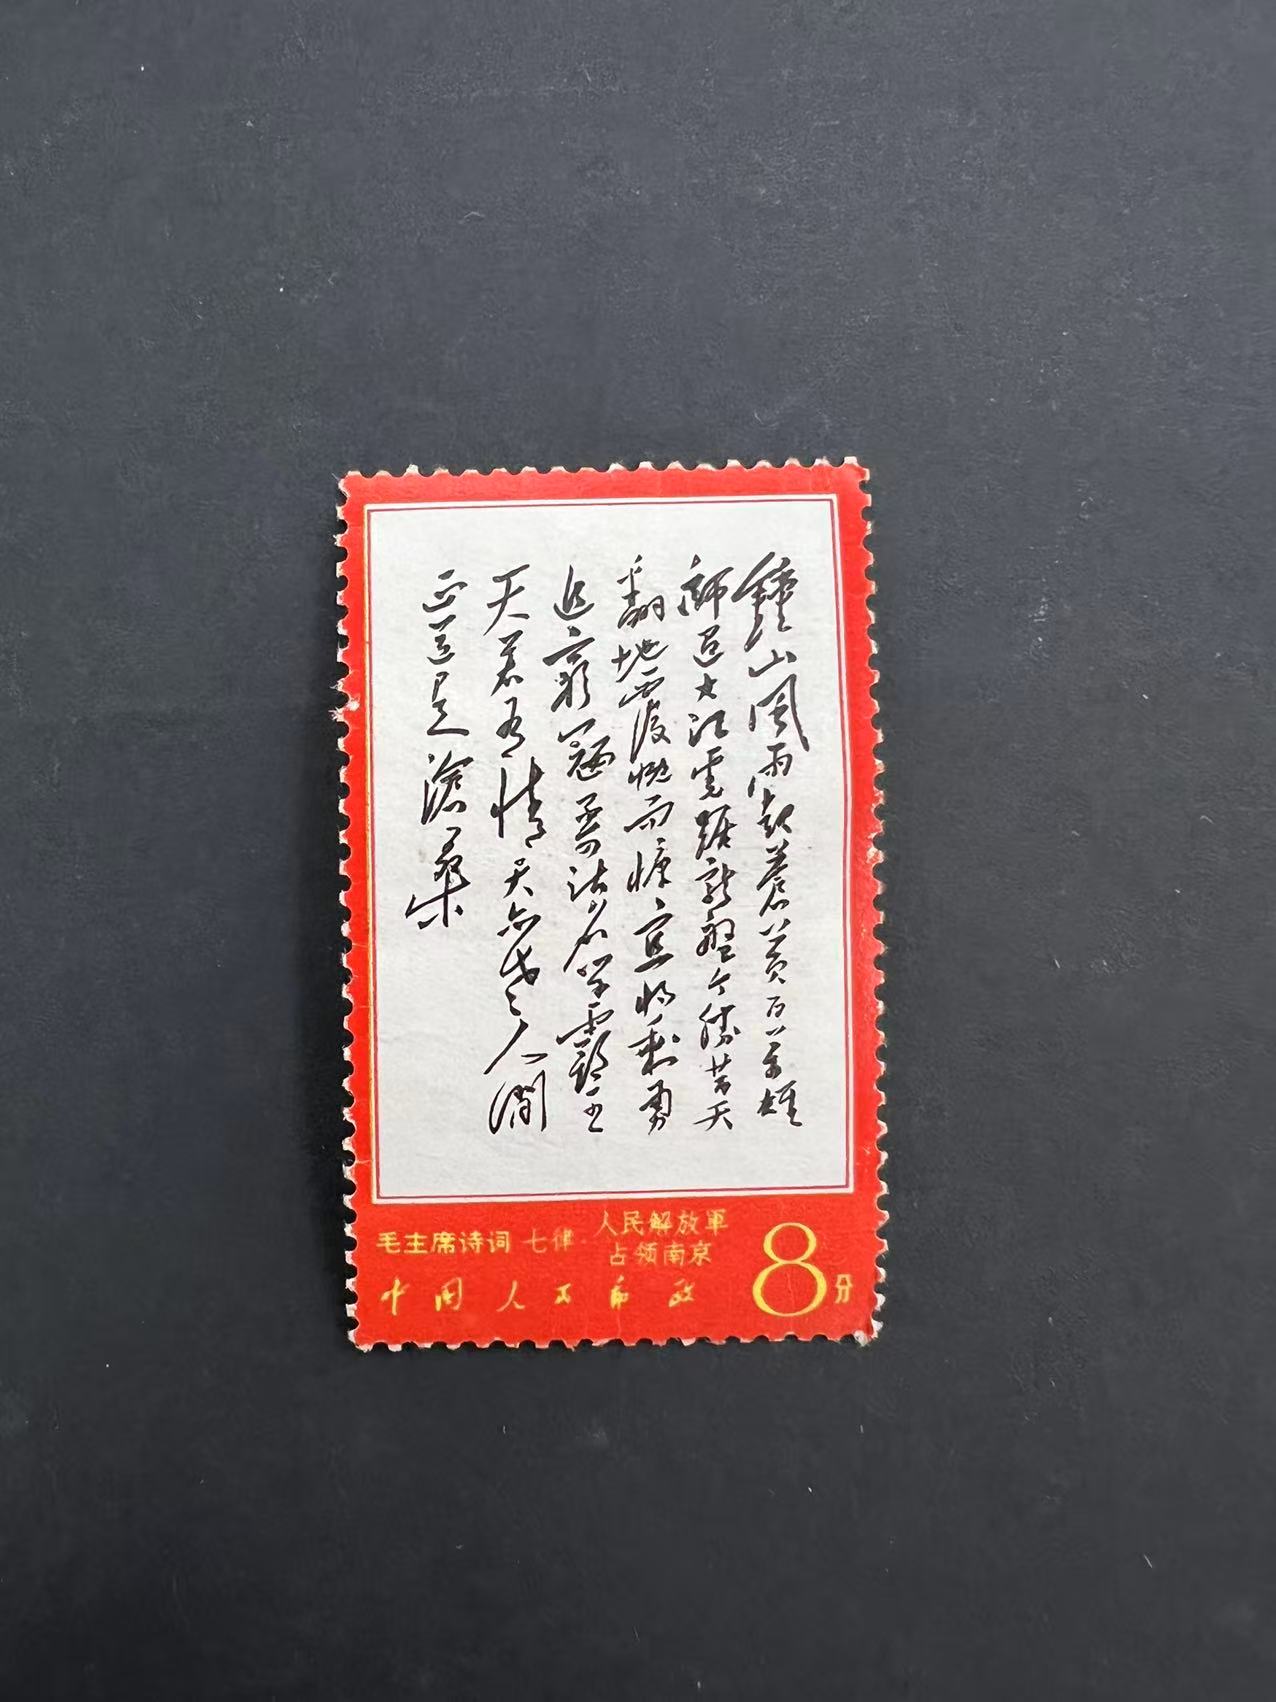 鍾山風雨起蒼黃百萬雄
師過大江虎踞龍盤今勝昔天
翻地覆慨而慷宜將剩勇
追窮寇不可沽名學霸王
天若有情天亦老人間
正道是滄桑
毛主席诗词 七律·人民解放軍
占领南京
中国人民邮政
8分